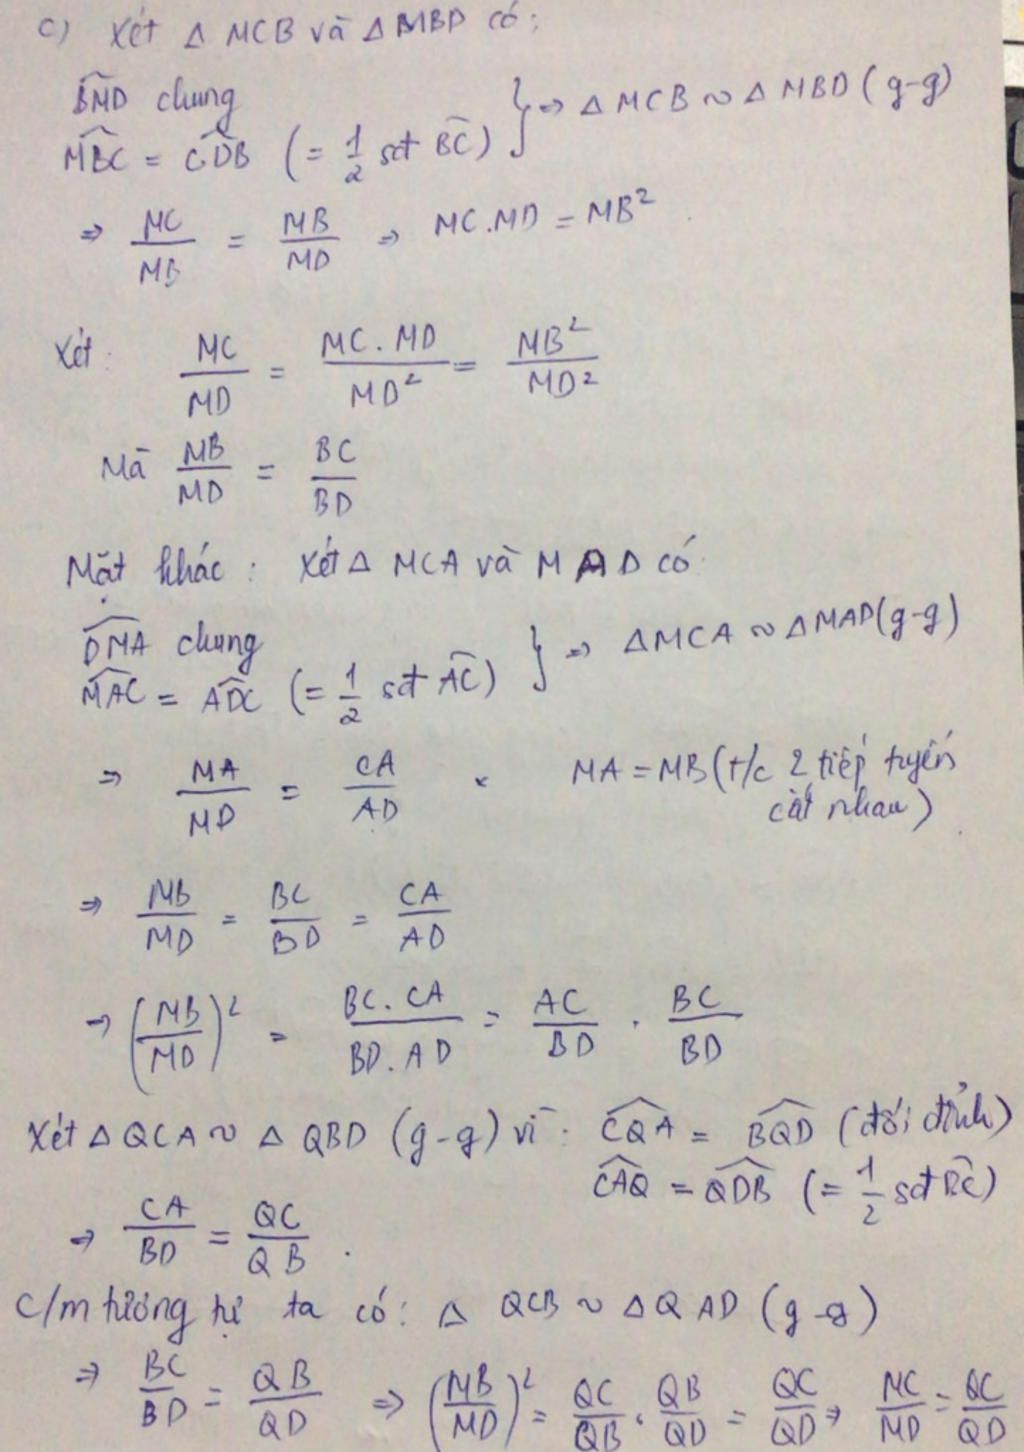 c) Xét Δ MCB và Δ MBD có:
BMD chung
MBC = CDB (= 1/2 sđ BC) } ⇒ Δ MCB ∽ Δ MBD (g-g)
⇒ MC/MB = MB/MD ⇒ MC.MD = MB²
Xét: MC/MD = MC.MD/MD² = MB²/MD²
Mà MB/MD = BC/BD
Mặt khác: Xét Δ MCA và MAD có
DMA chung
MAC = ADC (= 1/2 sđ AC) } ⇒ ΔMCA ∽ ΔMAD (g-g)
⇒ MA/MD = CA/AD . MA = MB (t/c 2 tiếp tuyến
cắt nhau)
⇒ MB/MD = BC/BD = CA/AD
⇒ (MB/MD)² = BC.CA/BD.AD = AC/BD . BC/BD
Xét Δ QCA ∽ Δ QBD (g-g) vì: CQA = BQD (đối đỉnh)
CAQ = QDB (= 1/2 sđ BC)
⇒ CA/BD = QC/QB .
C/m tương tự ta có: Δ QCB ∽ Δ QAD (g-g)
⇒ BC/BD = QB/QD ⇒ (MB/MD)² = QC/QB . QB/QD = QC/QD ⇒ MC/MD = QC/QD